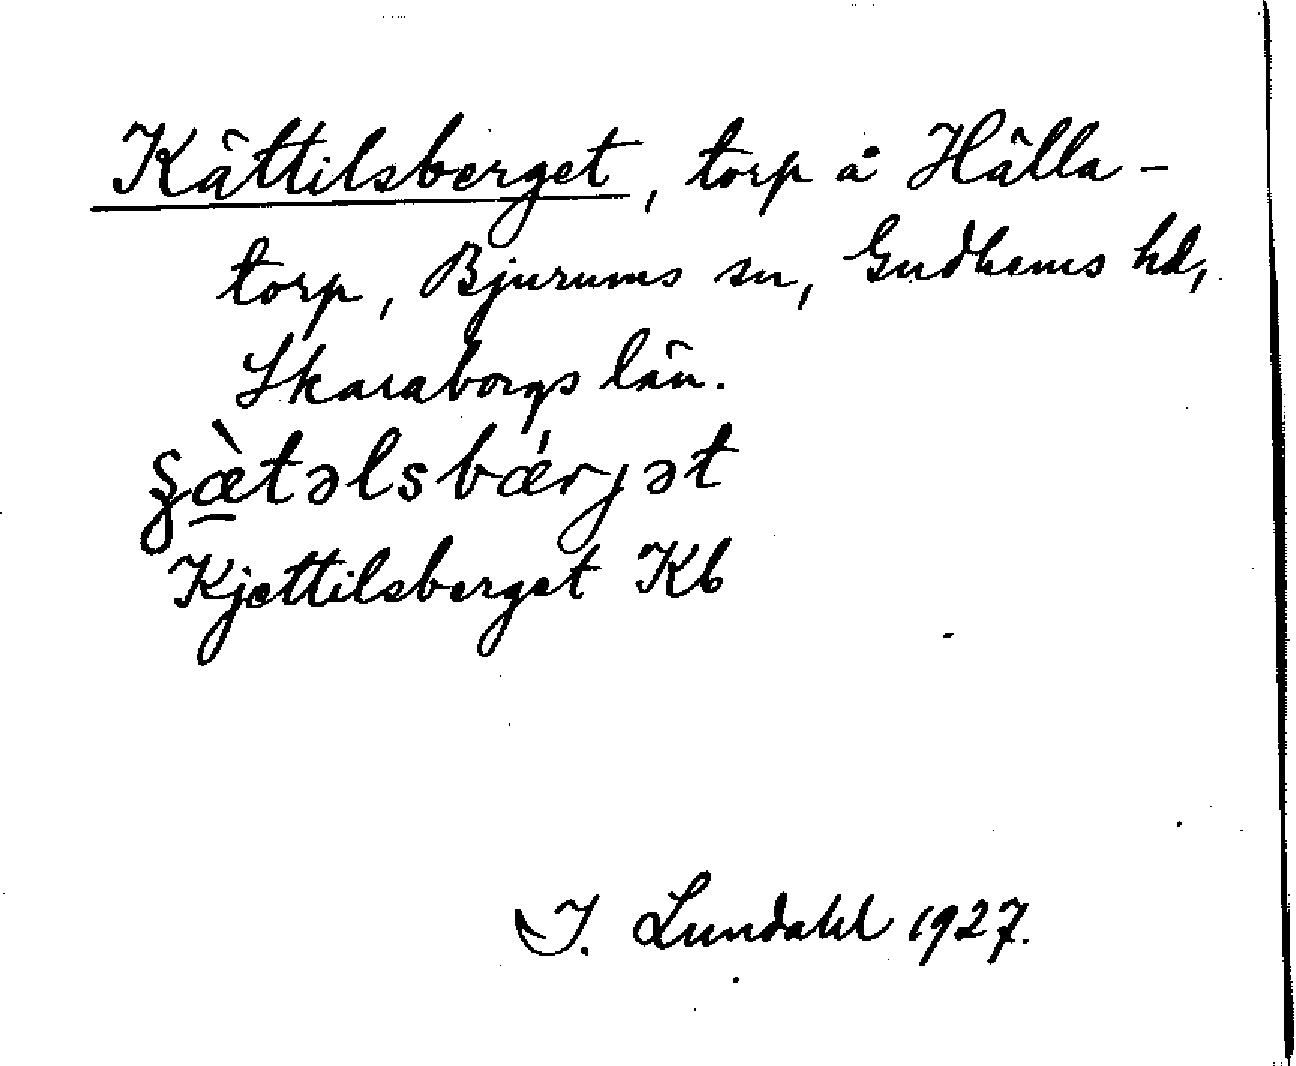 Kättilsberget, torp å Hälla-
torp, Bjurums sn, Gudhems hd,
Skaraborgs län.
Kjettilsberget Kb
I. Lundahl 1927.